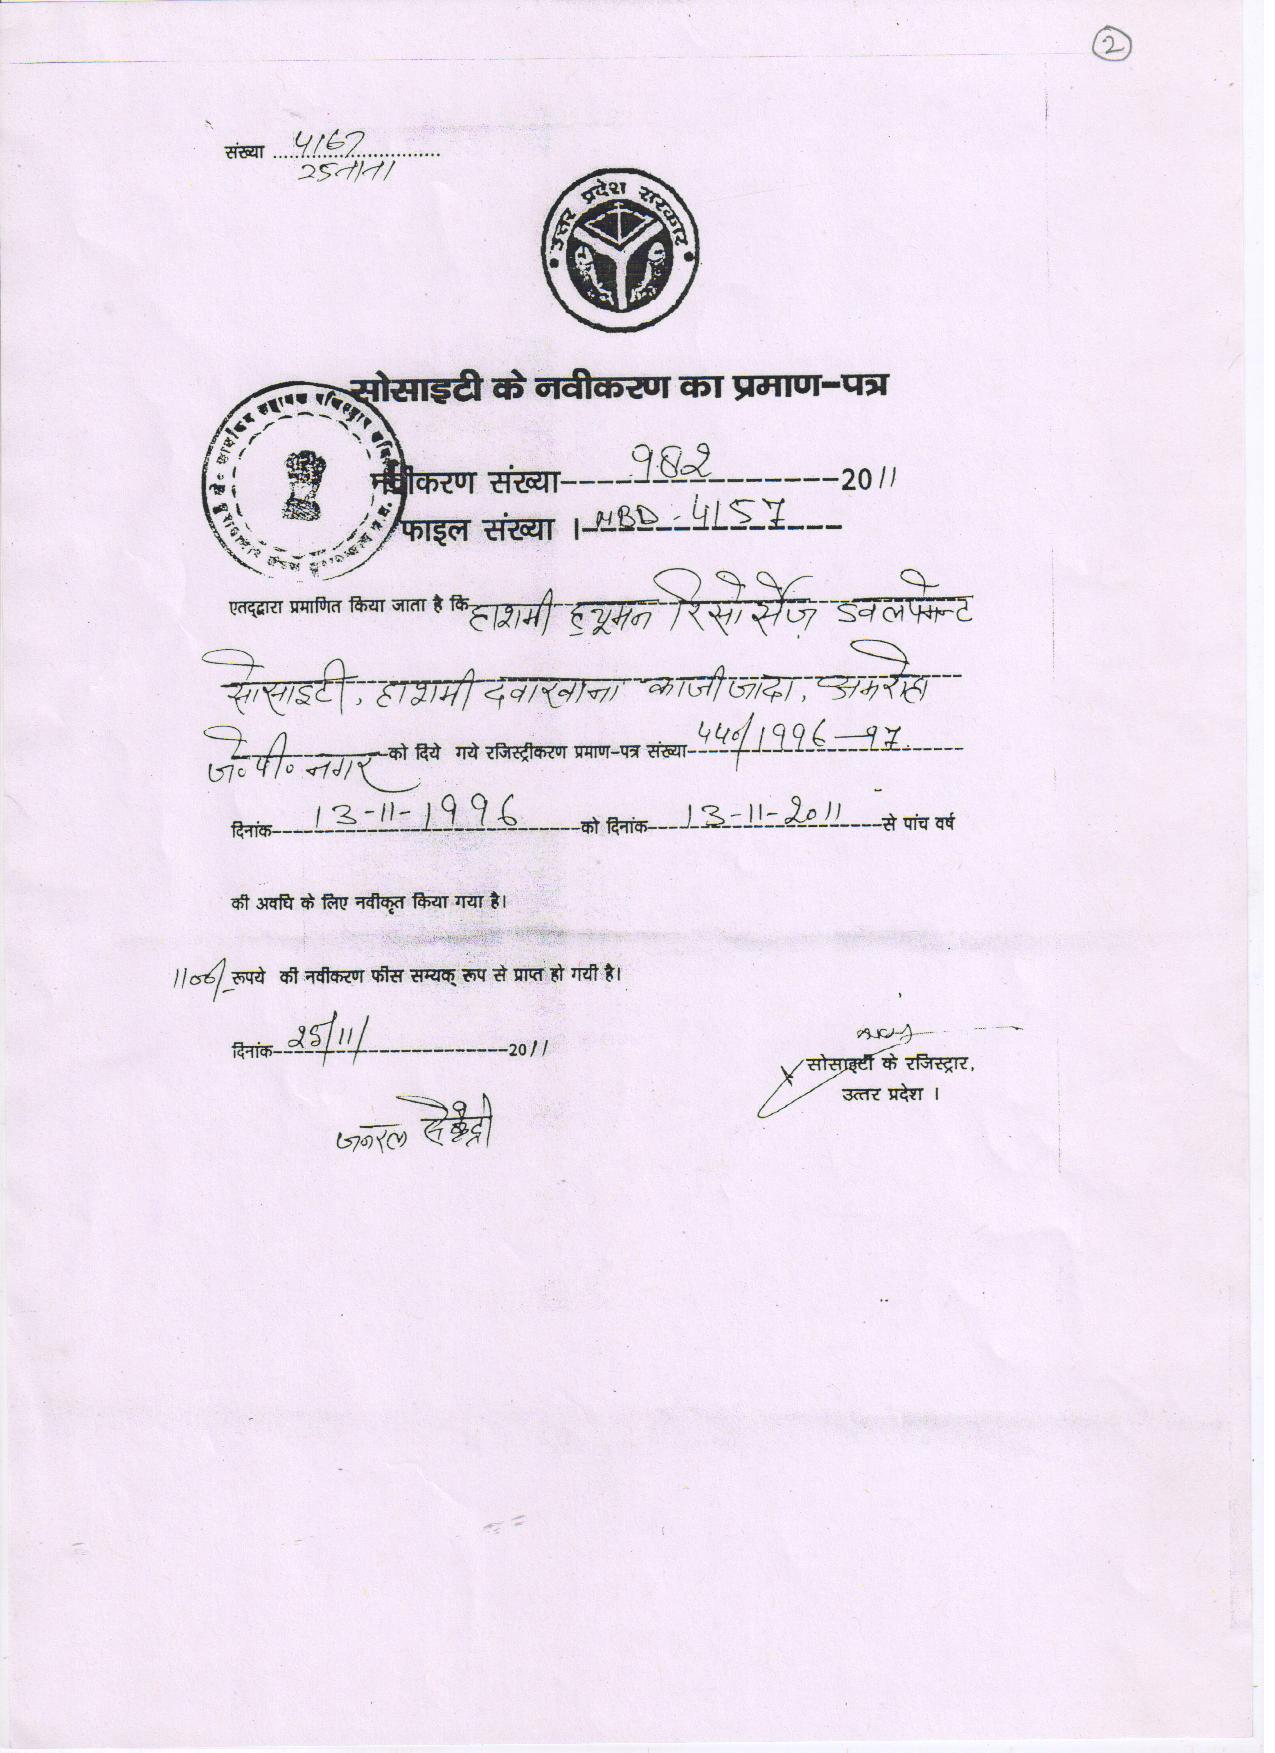 2
संख्या ................................ 4167
उत्तर प्रदेश सरकार
सोसाइटी के नवीकरण का प्रमाण-पत्र
नवीकरण संख्या-----------------2011
फाइल संख्या ।-MBD-4157
एतद्द्वारा प्रमाणित किया जाता है कि हाशमी ह्यूमन रिसोर्सेज़ डवलपमेन्ट
सोसाइटी, हाशमी दवाखाना काजीजादा, अमरोहा
जे०पी० नगर को दिये गये रजिस्ट्रीकरण प्रमाण-पत्र संख्या- /1996-97
दिनांक-13-11-1996-को दिनांक-13-11-2011-से पांच वर्ष
की अवधि के लिए नवीकृत किया गया है।
1100/- रूपये की नवीकरण फीस सम्यक् रूप से प्राप्त हो गयी है।
दिनांक-25/11/-2011
सोसाइटी के रजिस्ट्रार,
उत्तर प्रदेश ।
जनरल सैक्रेट्री